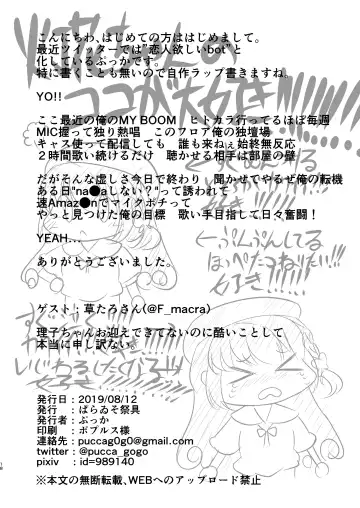 こんにちわ、はじめての方ははじめまして。
最近ツイッターでは”恋人欲しいbot”と
化しているぷっかです。
特に書くことも無いので自作ラップ書きますね。
YO!!
ここ最近の俺のMY BOOM　ヒトカラ行ってるほぼ毎週
MIC握って独り熱唱　このフロア俺の独壇場
キャス使って配信しても　誰も来ねぇ始終無反応
２時間歌い続けるだけ　聴かせる相手は部屋の壁
だがそんな虚しさ今日で終わり　聞かせてやるぜ俺の転機
ある日"na●aしない？"って誘われて
速Amaz●nでマイクポチって
やっと見つけた俺の目標　歌い手目指して日々奮闘！
YEAH...
ありがとうございました。
ゲスト：草たろさん（@F_macra）
理子ちゃんお迎えできてないのに酷いことして
本当に申し訳ない。
発行日：2019/08/12
発行　：ばらゐそ祭具
発行者：ぷっか
印刷　：ポプルス様
連絡先：puccag0g0@gmail.com
twitter：@pucca_gogo
pixiv　：id=989140
※本文の無断転載、WEBへのアップロード禁止
ココが大好き!!!
←ぷんぷんしてる
ほっぺたつねりたい!!
好き!!!!